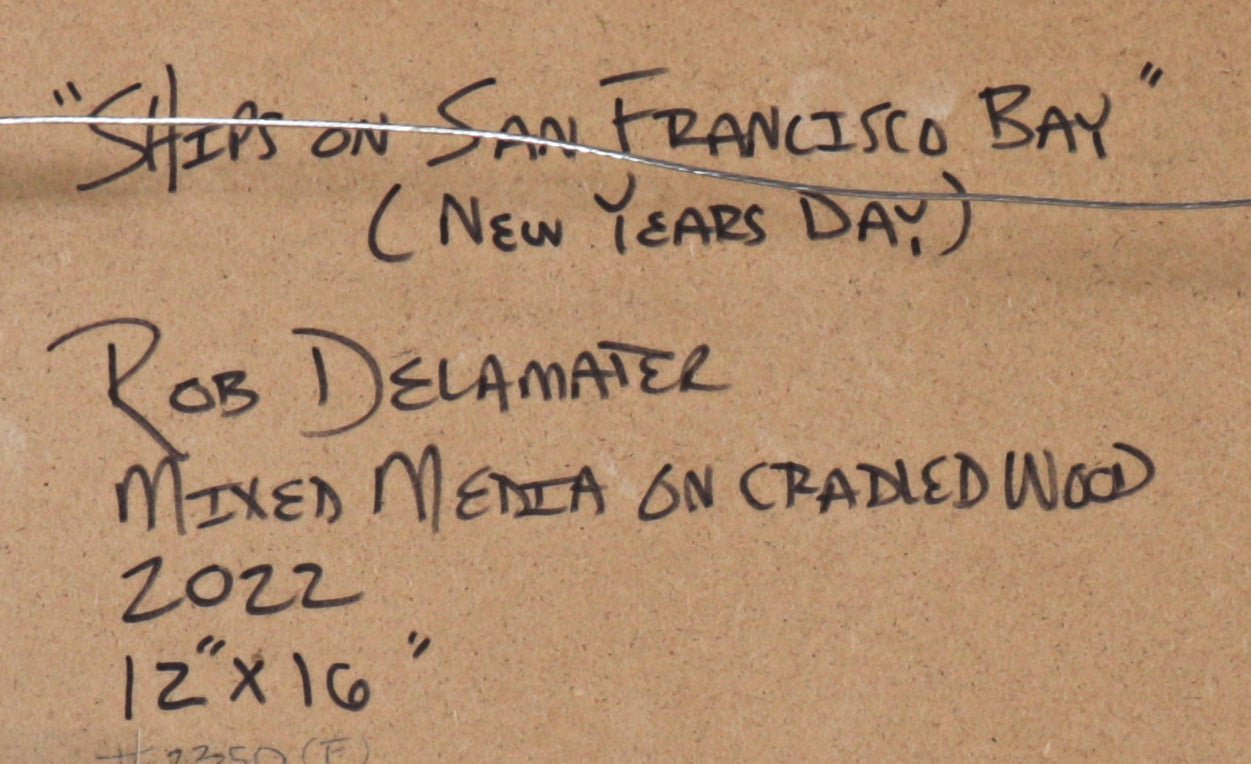 "SHIPS ON SAN FRANCISCO BAY"
(NEW YEARS DAY)
ROB DELAMATER
MIXED MEDIA ON CRADLED WOOD
2022
12" X 16"
#2350(F)